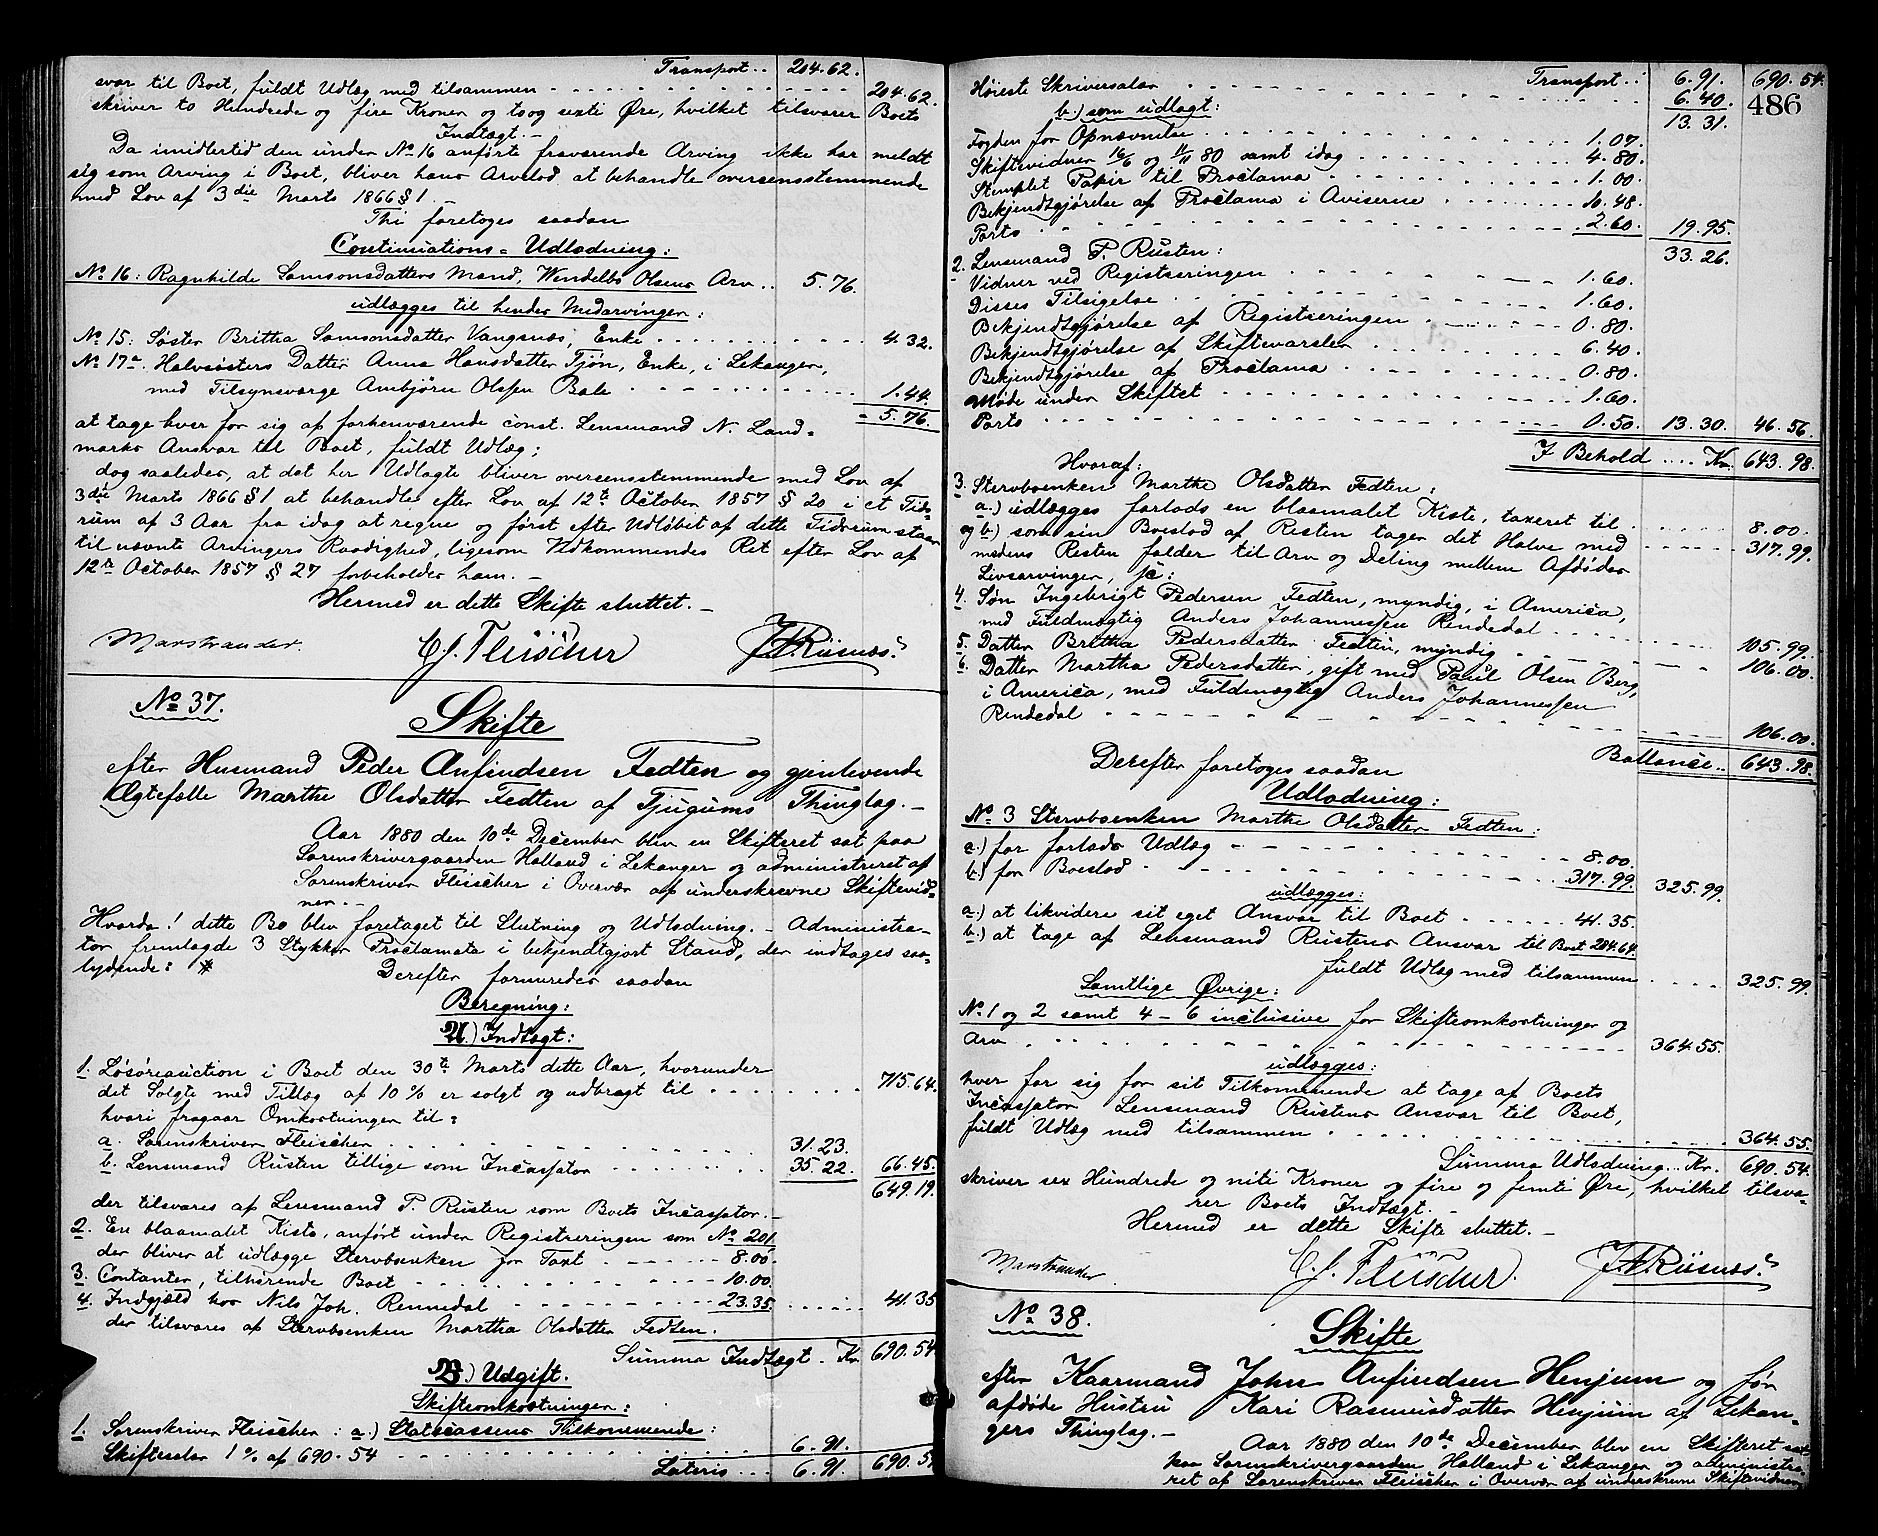 Transport .. 204.62.
svar til Boet, fuldt Udlæg med tilsammen 204.62.
skriver to Hundrede og fire Kroner og to og sexti Øre, hvilket tilsvarer Boets
Indtægt. –
Da imidlertid den under No 16 anførte fraværende Arving ikke har meldt
sig som Arving i Boet, bliver hans Arvelod at behandle overensstemmende
med Lov af 3die Marts 1866 § 1. –
Thi foretoges saadan
Continuations = Udlodning:
No 16: Ragnhilde Samsonsdatters Mand, Wendelbo Olsens Arv .. 5.76.
udlægges til hendes Medarvinger:
No 15: Søster Brittha Samsonsdatter Vangsnæs, Enke 4.32.
No 17a. Halvsøsters Datter Anna Hansdatter Tjøn, Enke, i Lekanger,
med Tilsynsværge Ambjørn Olsen Bale 1.44.
= 5.76.
at tage hver for sig af forhenværende const. Lensmand N. Land-
marks Ansvar til Boet, fuldt Udlæg;
dog saaledes, at det her Udlagte bliver overensstemmende med Lov af
3die Marts 1866 § 1 at behandle efter Lov af 12te October 1857 § 20 i et Tids-
rum af 3 Aar fra idag at regne og først efter Udløbet af dette Tidsrum staar
til nævnte Arvingers Raadighed, ligesom Vedkommendes Ret efter Lov af
12te October 1857 § 27 forbeholdes ham. –
Hermed er dette Skifte sluttet. –
Marstrander. C. J. Fleischer J. A. Riisnæs.
No 37.
Skifte
efter Husmand Peder Anfindsen Fedten og gjenlevende
Ægtefælle Marthe Olsdatter Fedten af Tjugums Thinglag. –
Aar 1880 den 10de December blev en Skifteret sat paa
Sorenskrivergaarden Holland i Lekanger og administreret af
Sorenskriver Fleischer i Overvær af underskrevne Skiftevid-
ner. –
Hvorda! dette Bo blev foretaget til Slutning og Udlodning. – Administra-
tor fremlagde 3 Stykker Proclamata i bekjendtgjort Stand, der indtages saa-
lydende:
Derefter formeredes saadan
Beregning:
A.) Indtægt:
1. Løsøreauction i Boet den 30te Marts dette Aar, hvorunder
det Solgte med Tillæg af 10 % er solgt og udbragt til 715.64.
hvori fragaar Omkostninger til:
a. Sorenskriver Fleischer 31.23.
b. Lensmand Rusten tillige som Incassator 35.22. 66.45.
649.19.
der tilsvares af Lensmand P. Rusten som Boets Incassator. –
2. En blaamalet Kiste, anført under Registreringen som No 201
der bliver at udlægge Stervboenken for Taxt 8.00.
3. Contanter, tilhørende Boet 10.00.
4. Indgjæld hos Nils Joh. Rennedal 23.35. 41.35
der tilsvares af Stervboenken Martha Olsdatter Fedten.
Summa Indtægt . Kr. 690.54
B.) Udgift.
Skifteomkostninger:
1. Sorenskriver Fleischer: a.) Statscassens Tilkommende:
Skiftesalær 1 % af 690.54 6.91.
Lateris ... 6.91. 690.54
486
Transport .: 6.91. 690.54.
Høieste Skriversalær 6.40.
13.31.
b.) som udlagt:
Fogden for Opnævnelse 1.07.
Skiftevidner 16/6 og 11/11 80 samt idag 4.80.
Stemplet Papir til Proclama 1.00.
Bekjendtgjørelse af Proclama i Aviserne 10.48.
Porto 2.60. 19.95.
33.26.
2. Lensmand P. Rusten:
Vidner ved Registreringen 1.60.
Disses Tilsigelse 1.60.
Bekjendtgjørelse af Registreringen 0.80.
Bekjendtgjørelse af Skiftevarsler 6.40.
Bekjendtgjørelse af Proclama 0.80.
Møde under Skiftet 1.60.
Porto 0.50. 13.30. 46.56.
I Behold .... Kr. 643.98.
Hvoraf:
3. Stervboenken Marthe Olsdatter Fedten:
a.) udlægges forlods en blaamalet Kiste, taxeret til 8.00.
og b.) som sin Boeslod af Resten tager det Halve med 317.99.
medens Resten falder til Arv og Deling mellem Afdødes
Livsarvinger, jc:
4. Søn Ingebrigt Pedersen Fedten, myndig, i America,
med Fuldmægtig Anders Johannessen Rendedal 105.99.
5. Datter Brittha Pedersdatter Fedten, myndig 106.00.
6. Datter Martha Pedersdatter, gift med Paul Olsen Berg,
i America, med Fuldmægtig Anders Johannessen
Rendedal 106.00.
Ballance .. 643.98.
Derefter foretoges saadan
Udlodning:
No 3 Stervboenken Marthe Olsdatter Fedten:
a.) for forlods Udlæg 8.00.
b.) for Boeslod 317.99. 325.99.
udlægges:
a.) at likvidere sit eget Ansvar til Boet 41.35.
b.) at tage af Lensmand Rustens Ansvar til Boet 284.64.
fuldt Udlæg med tilsammen 325.99.
Samtlige Øvrige:
No. 1 og 2 samt 4 – 6 inclusive for Skifteomkostninger og
Arv 364.55.
udlægges:
hver for sig for sit Tilkommende at tage af Boets
Incassator Lensmand Rustens Ansvar til Boet,
fuldt Udlæg med tilsammen 364.55.
Summa Udlodning .. Kr. 690.54.
skriver sex Hundrede og niti Kroner og fire og femti Øre, hvilket tilsva-
rer Boets Indtægt. –
Hermed er dette Skifte sluttet. –
Marstrander C. J. Fleischer. J. A. Riisnæs.
No 38.
Skifte
efter Kaarmand John Anfindsen Henjum og før
afdøde Hustru Kari Rasmusdatter Henjum af Lekan-
gers Thinglag. –
Aar 1880 den 10de December blev en Skifteret sat
paa Sorenskrivergaarden Holland i Lekanger og administre-
ret af Sorenskriver Fleischer i Overvær af underskrevne Skiftevidner